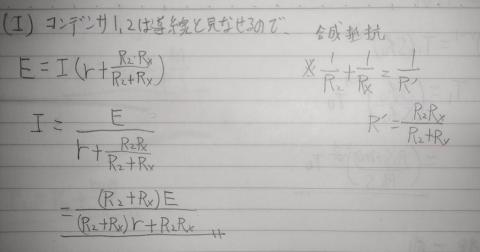 (I) コンデンサ1,2は導線と見なせるので、
合成抵抗
E = I(r + R₂·Rₓ/(R₂+Rₓ))
※ 1/R₂ + 1/Rₓ = 1/R'
I = E/(r + R₂Rₓ/(R₂+Rₓ))
R' = R₂Rₓ/(R₂+Rₓ)
= (R₂+Rₓ)E/((R₂+Rₓ)r + R₂Rₓ)